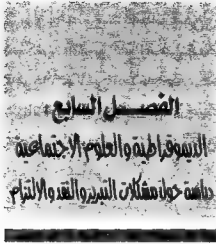 الفصل السابع
الديموقراطية والعلوم الاجتماعية
دراسة حول مشكلات التبرير والنقد والالتزام